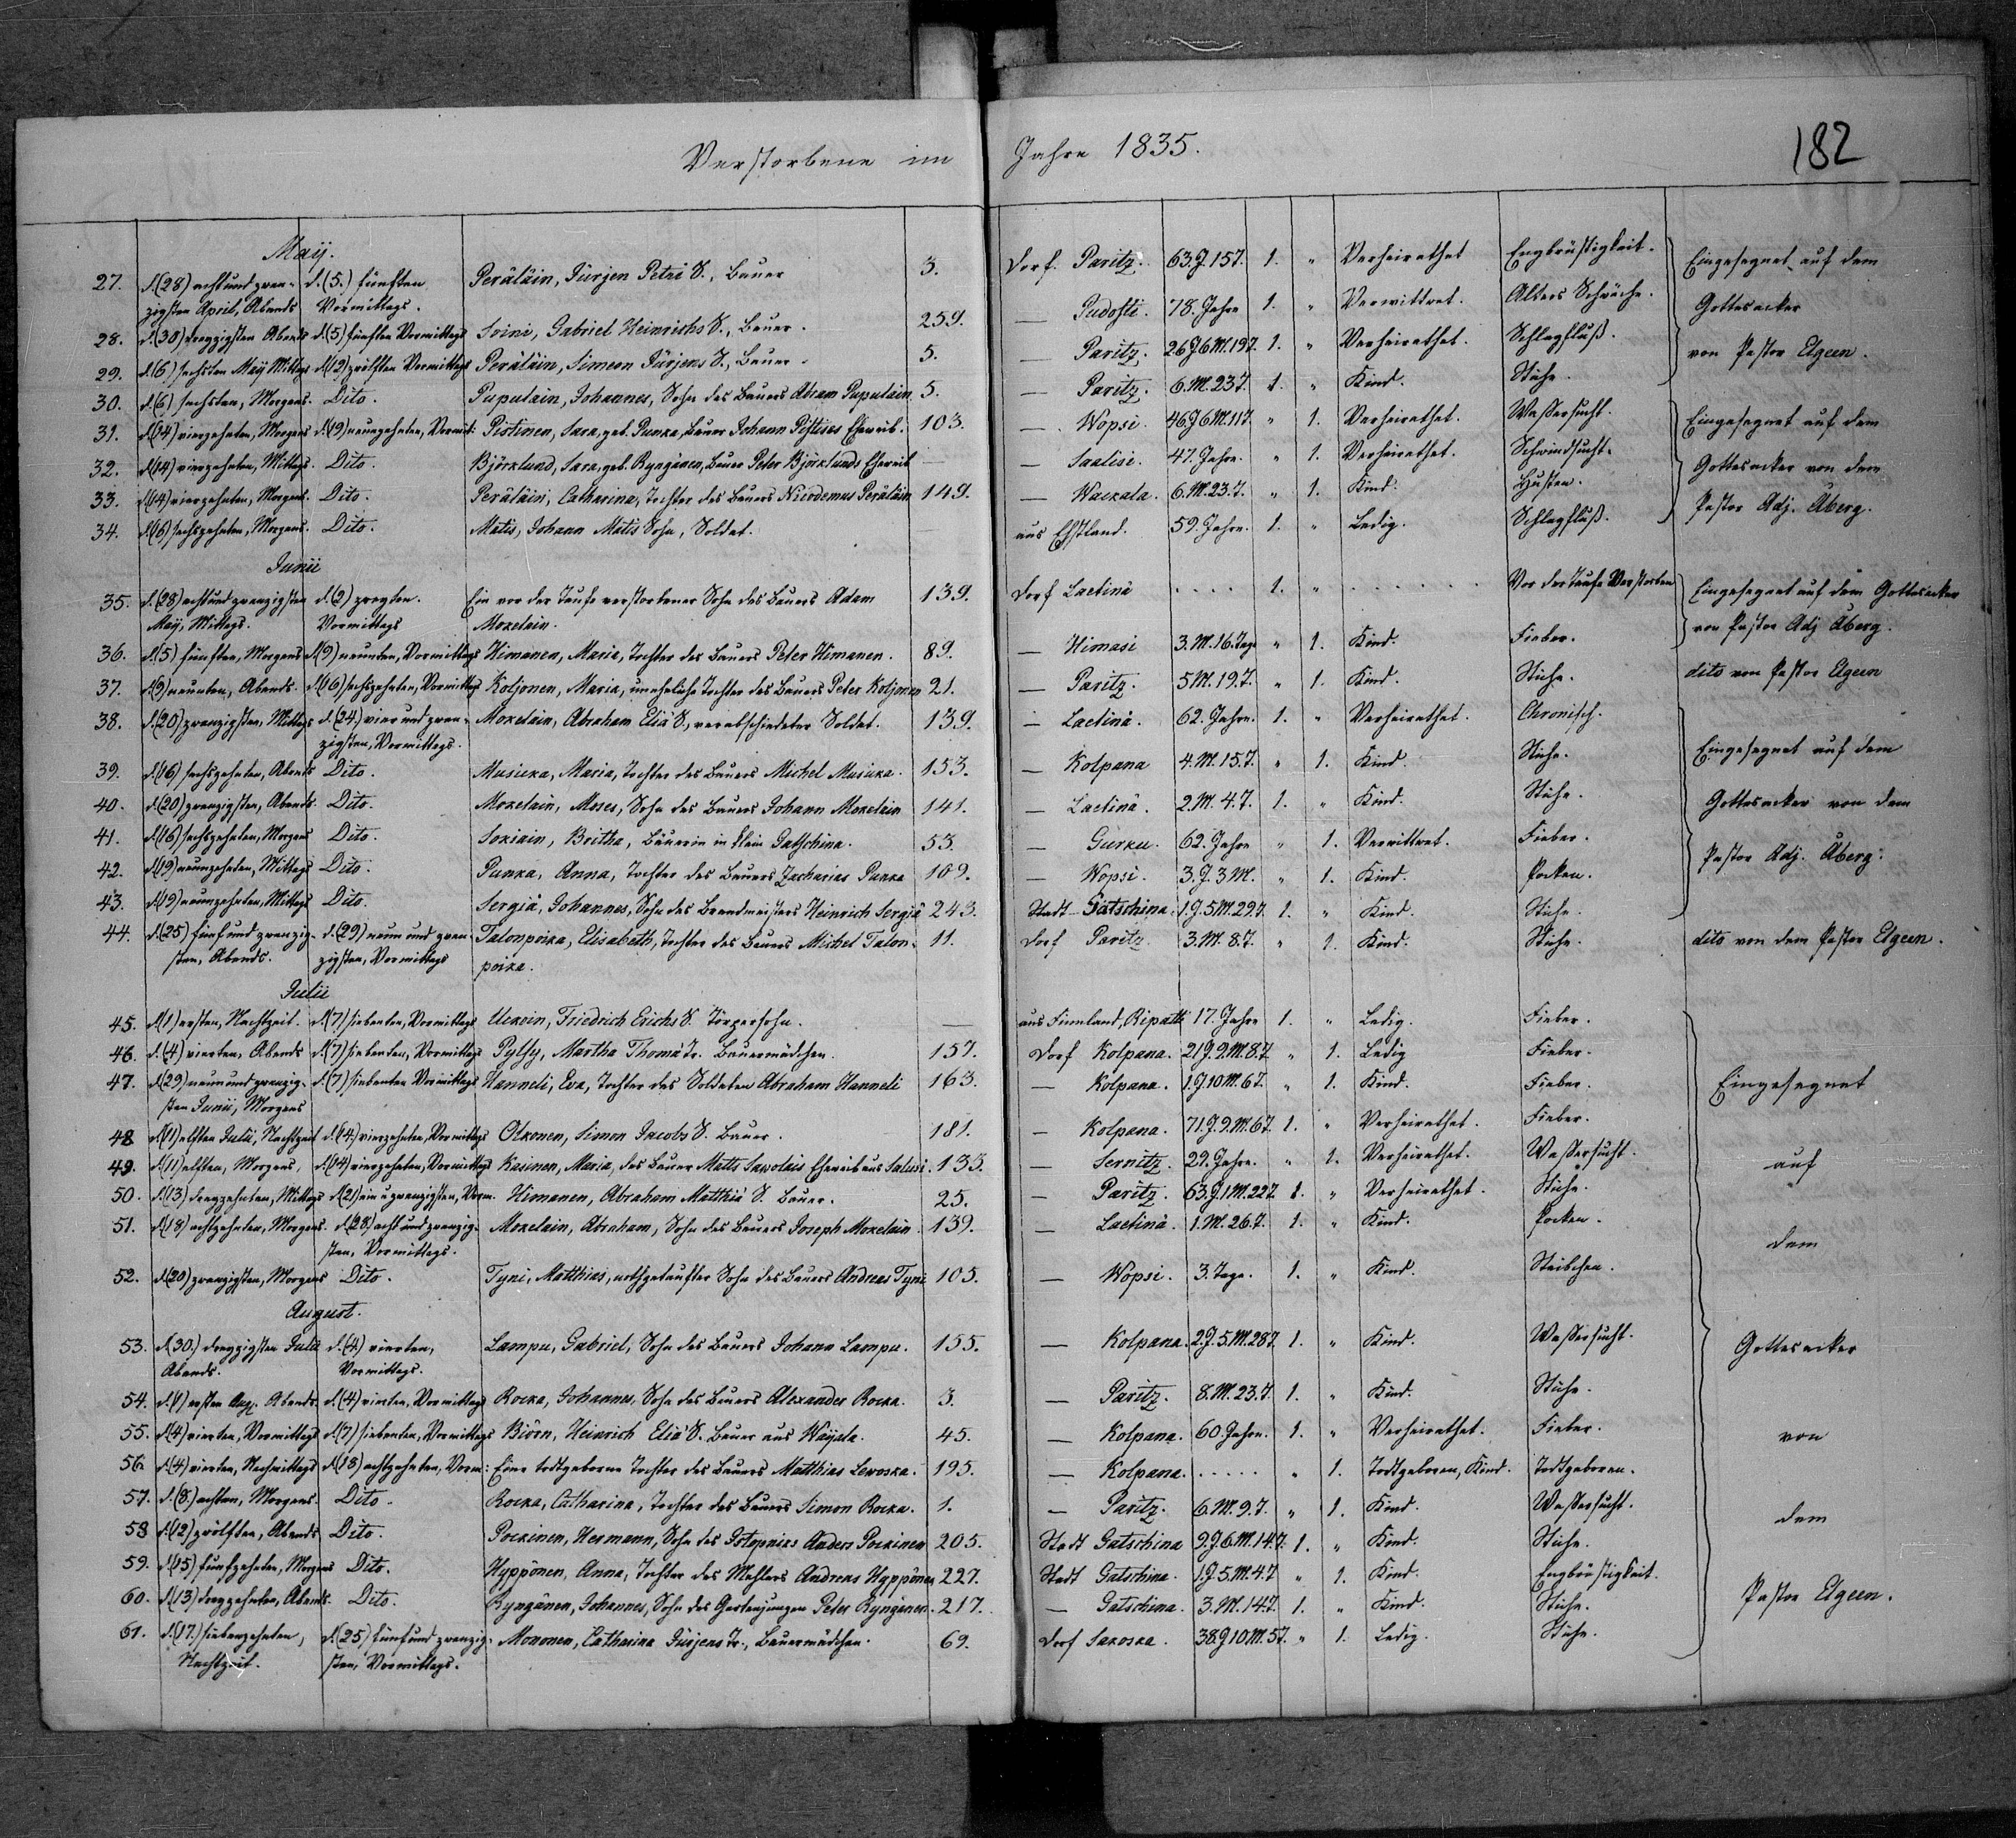 Verstorbene im Jahre 1835.
182
Maij.
27. d. (28) acht und zwan- d. (5.) fünften Peräläin, Jürjen Petri S., Bauer 3. Dorf Paritz. 63. J. 15 T. 1. " Verheirathet Engbrüstigkeit. Eingesegnet auf dem
zigsten April, Abends Vormittags.
28. d. (30) dreyzigsten Abends d. (5) fünften Vormittags Soini, Gabriel Heinrichs S., Bauer. 259. — Pudosti. 78. Jahre 1. " Verwittwet. Alters Schwäche. Gottesacker
29. d. (6) sechsten Maij Mittags d. (12) zwölften Vormittags Peräläin, Simeon Jürjens S., Bauer. 5. — Paritz. 26 J. 6 M. 19 T. 1. " Verheirathet. Schlagfluß. von Pastor Elgeen.
30. d. (6) sechsten, Morgens. Dito. Puputain, Johannes, Sohn des Bauers Abram Puputain 5. — Paritz. 6. M. 23 T. 1. " Kind. Stiche.
31. d. (14) vierzehnten, Morgens d. (19) neunzehnten, Vormit: Pistinen, Sara, geb. Punka, Bauer Johann Pistises Eheweib. 103. — Wopsi. 46 J. 6 M. 11 T. " 1. Verheirathet. Waßersucht. Eingesegnet auf dem
32. d. (14) vierzehnten, Mittags. Dito. Björklund, Sara, geb. Ryngänen, Bauer Peter Björklunds Eheweib — — Saalisi. 47. Jahre. " 1. Verheirathet. Schwindsucht. Gottesacker von dem
33. d. (14) vierzehnten, Morgens. Dito. Peräläin, Catharina, Tochter des Bauers Nicodemus Peräläin 149. — Wackala. 6. M. 23. T. " 1. Kind. Husten. Pastor Adj. Åberg.
34. d. (16) sechszehnten, Morgens. Dito. Matis, Johann Matis Sohn, Soldat. aus Ehstland. 59. Jahre. 1. " Ledig. Schlagfluß.
Junii
35. d. (28) acht und zwanzigsten d. (2) zweyten. Ein vor der Taufe verstorbener Sohn des Bauers Adam 139. Dorf Lactinä .... 1. " ...... Vor der Taufe Verstorben Eingesegnet auf dem Gottesacker
Maij, Mittags. Vormittags Mokelain. von Pastor Adj Åberg.
36. d. (5) fünften, Morgens d. (9) neunten, Vormittags Himanen, Maria, Tochter des Bauers Peter Himanen. 89. — Himasi 3. M. 16. Tage " 1. Kind. Fieber.
37. d. (9) neunten, Abends. d. (16) sechszehnten, Vormittags Koljonen, Maria, uneheliche Tochter des Bauers Peter Koljonen 21. — Paritz. 5 M. 19. T. " 1. Kind. Stiche. dito von Pastor Elgeen
38. d. (20) zwanzigsten, Mittags d. (24.) vier und zwan- Mokelain, Abraham Eliä S., verabschiedeter Soldat. 139. — Lactinä. 62. Jahre. 1. " Verheirathet. Chronisch.
zigsten, Vormittags.
39. d. (16) sechszehnten, Abends Dito. Musicka, Maria, Tochter des Bauers Michel Musicka. 153. — Kolpana 4. M. 15. T. " 1. Kind. Stiche. Eingesegnet auf dem
40. d. (20) zwanzigsten, Abends. Dito. Mokelain, Moses, Sohn des Bauers Johann Mokelain 141. — Lactinä. 2. M. 4. T. 1. " Kind. Stiche. Gottesacker von dem
41. d. (16) sechszehnten, Morgens Dito. Sokiain, Britha, Bäuerin in klein Gatschina. 53. — Gurku. 62. Jahre " 1. Verwittwet. Fieber. Pastor Adj. Åberg.
42. d. (19) neunzehnten, Mittags Dito. Punka, Anna, Tochter des Bauers Zacharias Punka 109. — Wopsi. 3. J. 3 M. " 1. Kind. Pocken.
43. d. (19) neunzehnten, Mittags Dito. Sergiä, Johannes, Sohn des Brandmeisters Heinrich Sergiä 243. Stadt Gatschina. 1 J. 5 M. 29 T. 1. " Kind. Stiche.
44. d. (25) fünf und zwanzig- d. (29) neun und zwan- Talonpoika, Elisabeth, Tochter des Bauers Michel Talon- 11. Dorf Paritz. 3. M. 8. T. " 1. Kind. Stiche. dito von dem Pastor Elgeen.
sten, Abends. zigsten, Vormittags poika.
Julii
45. d. (1) ersten, Nachtzeit. d. (7) siebenten, Vormittags Uckoin, Friedrich Erichs S. Törpersohn. — aus Finnland, Ripatti 17. Jahre 1. " Ledig. Fieber.
46. d. (4) vierten, Abends d. (7) siebenten, Vormittags Pylsy, Martha Thomä Tr. Bauermädchen. 157. Dorf Kolpana. 21 J. 9. M. 8. T. " 1. Ledig Fieber.
47. d. (29) neun und zwanzig- d. (7) siebenten Vormittags Hanneli, Eva, Tochter des Soldaten Abraham Hanneli 163. — Kolpana. 1. J. 10 M. 6 T. " 1. Kind. Fieber. Eingesegnet
sten Junii, Morgens
48 d. (11) elften Julii, Nachtzeit d. (14.) vierzehnten, Vormittags Olkonen, Simon Jacobs S. Bauer. 181. — Kolpana. 71. J. 9. M. 6 T. 1. " Verheirathet. Fieber.
49. d. (11) elften, Morgens, d. (14) vierzehnten, Vormittags Kasinen, Maria, des Bauer Matts Sawolais Eheweib aus Salusi. 133. — Sernitz. 29. Jahre. " 1. Verheirathet. Waßersucht. auf
50. d. (13) dreyzehnten, Mittags d. (21) ein u zwanzigsten, Vorm. Himanen, Abraham Matthiä S. Bauer. 25. — Paritz. 63. J. 1 M. 22 T. 1. " Verheirathet. Stiche.
51. d. (18) achtzehnten, Morgens. d. (28.) acht und zwanzig- Mokelain, Abraham, Sohn des Bauers Joseph Mokelain. 139. — Lactinä. 1. M. 26. T. 1. " Kind. Pocken. dem
sten, Vormittags.
52. d. (20) zwanzigsten, Morgens Dito. Tyni, Matthias, nothgetaufter Sohn des Bauers Andreas Tyni 105. — Wopsi. 3. Tage. 1. " Kind.
August.
53. d. (30.) dreyzigsten Julii d. (4) vierten, Lampu, Gabriel, Sohn des Bauers Johann Lampu. 155. — Kolpana. 2. J. 5. M. 28 T. 1. " Kind. Waßersucht. Gottesacker
Abends. Vormittags.
54. d. (1) ersten Aug. Abends. d. (4) vierten, Vormittags Rocka, Johannes, Sohn des Bauers Alexander Rocka. 3. — Paritz. 8. M. 23. T. 1. " Kind. Stiche.
55. d. (4) vierten, Vormittags d. (7) siebenten, Vormittags Biörn, Heinrich Eliä S. Bauer aus Wäyala. 45. — Kolpana. 60. Jahre. 1. " Verheirathet. Fieber. von
56 d. (4) vierten, Nachmittags d. (18) achtzehnten, Vorm: Eine todtgeborne Tochter des Bauers Matthias Lewoska. 195. — Kolpana. ..... " 1. Todtgeboren, Kind. Todtgeboren.
57. d. (8.) achten, Morgens. Dito. Rocka, Catharina, Tochter des Bauers Simon Rocka. 1. — Paritz. 6. M. 9. T. " 1. Kind. Waßersucht. dem
58 d. (12) zwölften, Abends Dito. Pockinen, Hermann, Sohn des Istopniks Anders Pockinen 205. Stadt Gatschina 9. J. 6. M. 14 T. 1. " Kind. Stiche.
59. d. (15) fünfzehnten, Morgens Dito. Hyppönen, Anna, Tochter des Mahlers Andreas Hyppönen 227. Stadt Gatschina. 1. J. 5. M. 4. T " 1. Kind. Engbrüstigkeit.
60. d. (13) dreyzehnten, Abends. Dito. Ryngänen, Johannes, Sohn des Gartenjungen Peter Ryngänen. 217. — Gatschina. 3. M. 14 T. 1. " Kind. Stiche. Pastor Elgeen.
61. d. (17.) siebenzehnten, d. (25.) fünf und zwanzig- Mononen, Catharina Jürjens Tr., Bauermädchen. 69. Dorf Sakoska. 38. J. 10. M. 5 T. " 1. Ledig. Stiche.
Nachtzeit. sten, Vormittags.